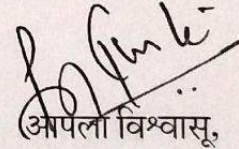 (आपला विश्वासू,